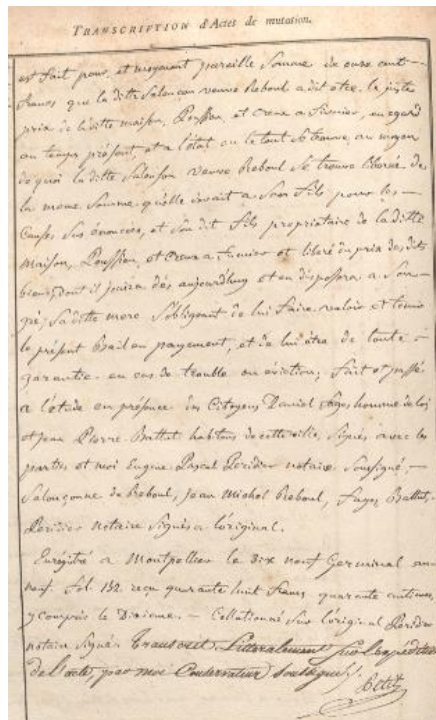 TRANSCRIPTION d'Actes de mutation.
est fait pour, et moyenant pareille Somme de onze cent
francs que la ditte Salonçon veuve Reboul a dit être le juste
prix de la ditte maison, Poussien, et Creux a fumier, eu egard
au temps présent, et a l'état ou le tout se trouve, au moyen
de quoi la ditte Salonson veuve Reboul se trouve liberée de
la meme Somme qu'elle devait a Son fils pour les
Causes Sus enoncées, et Son dit fils propriétaire de la ditte
maison, Poussien, et Creux a fumier et liberé du prix des dits
biens, dont il jouira dès aujourdhuy et en disposera a Son
gré, Sa ditte mere S'obligeant de lui faire valoir et tenir
le présent Bail en payement, et de lui être de toute
garantie en cas de trouble ou éviction; fait et passé
a l'étude en présence des Citoyens Daniel fages homme de loi
et jean Pierre Battut habitans de cette ville, Signés avec les
parties et moi Eugene Pascal Peridier notaire Soussigné,
Salonçonne de Reboul, Jean Michel Reboul, fages, Battut,
Peridier notaire Signés a l'original.
Enrégistré a Montpellier le dix neuf Germinal an
neuf. fol. 132 reçu quarante huit francs quarante centimes,
y compris le Dixieme. - Collationné Sur l'original Peridier
notaire Signé. Transcrit Litteralement Sur l'expédition
de l'acte, par moi Conservateur Soussigné.
Petit